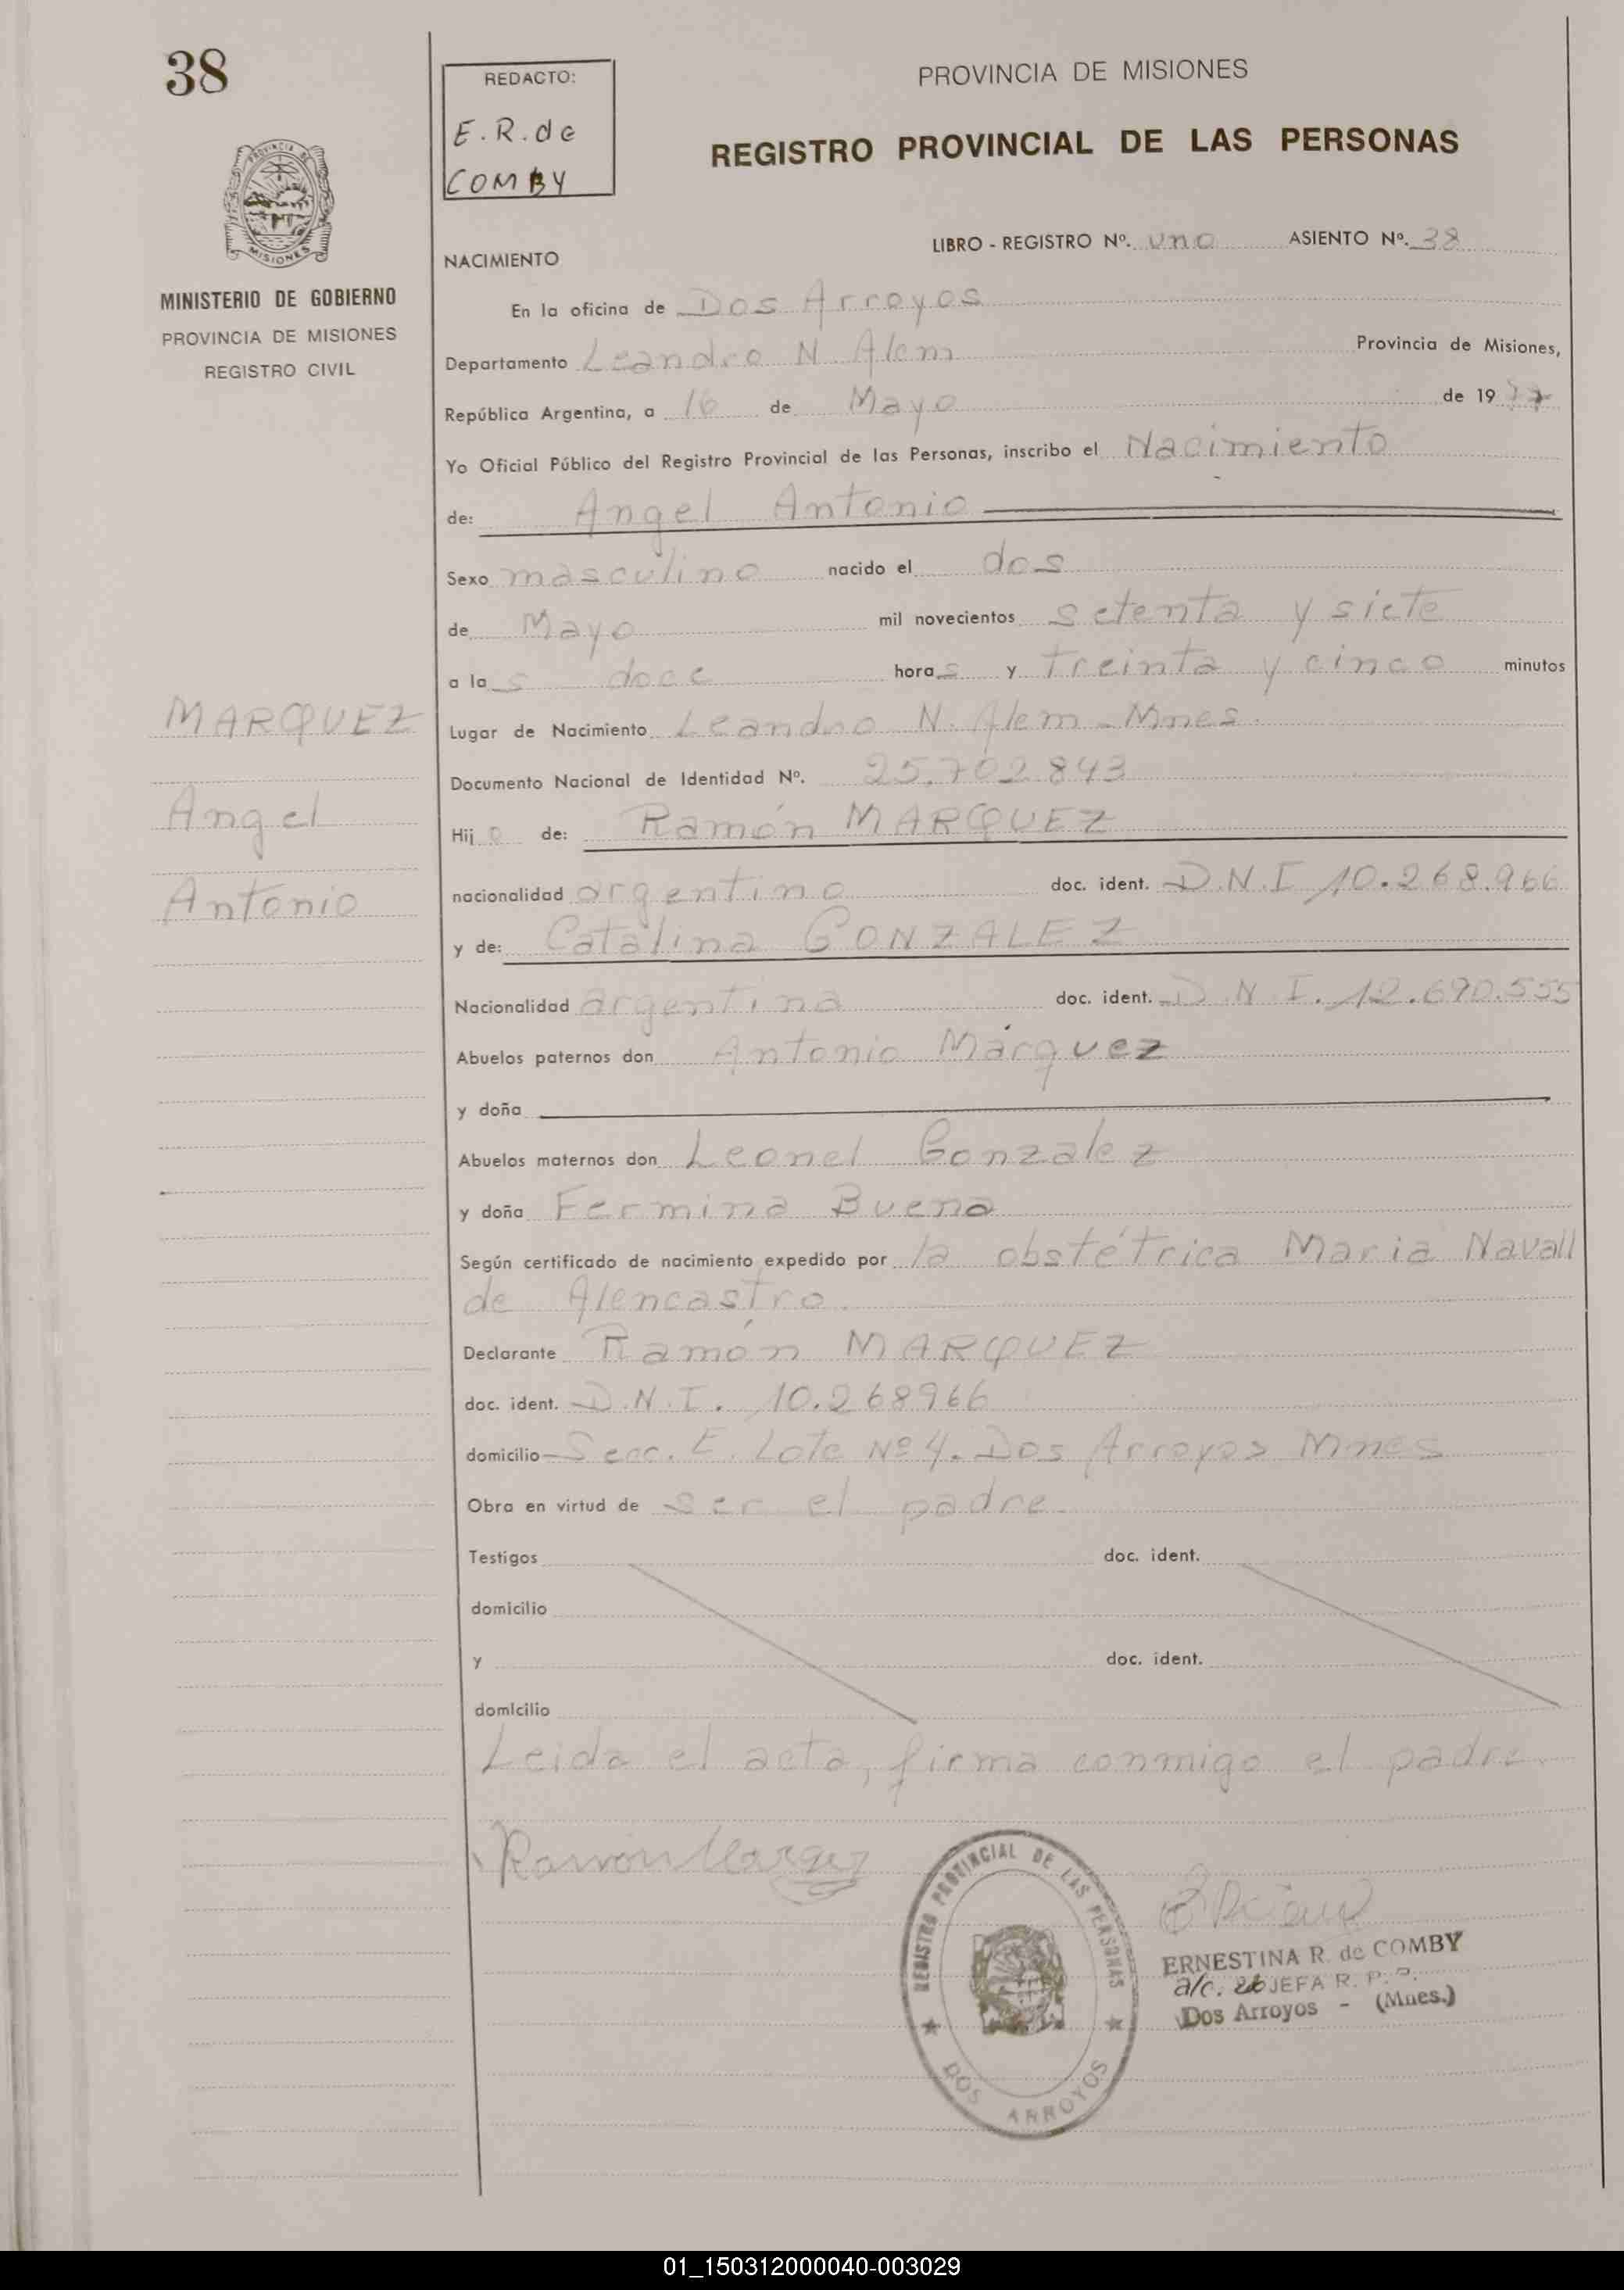 38
REDACTO:
E.R. de
COMBY
PROVINCIA DE MISIONES
REGISTRO PROVINCIAL DE LAS PERSONAS
PROVINCIA DE
MISIONES
MINISTERIO DE GOBIERNO
PROVINCIA DE MISIONES
REGISTRO CIVIL
LIBRO - REGISTRO Nº. uno ASIENTO Nº. 38
NACIMIENTO
En la oficina de Dos Arroyos
Departamento Leandro N. Alem Provincia de Misiones,
República Argentina, a 16 de Mayo de 1977
Yo Oficial Público del Registro Provincial de las Personas, inscribo el Nacimiento
de: Angel Antonio
Sexo masculino nacido el dos
de Mayo mil novecientos setenta y siete
a las doce horas y treinta y cinco minutos
MARQUEZ
Angel
Antonio
Lugar de Nacimiento Leandro N. Alem - Mnes.
Documento Nacional de Identidad Nº. 25.702.843
Hijo de: Ramón MARQUEZ
nacionalidad argentino doc. ident. D.N.I 10.268.966
y de: Catalina GONZALEZ
Nacionalidad argentina doc. ident. D.N.I. 12.690.555
Abuelos paternos don Antonio Márquez
y doña
Abuelos maternos don Leonel Gonzalez
y doña Fermina Bueno
Según certificado de nacimiento expedido por la obstétrica Maria Navall
de Alencastro.
Declarante Ramón MARQUEZ
doc. ident. D.N.I. 10.268966
domicilio Secc. E. Lote Nº 4. Dos Arroyos Mnes
Obra en virtud de ser el padre.
Testigos doc. ident.
domicilio
y doc. ident.
domicilio
Leida el acta, firma conmigo el padre.
Ramón Marquez
REGISTRO PROVINCIAL DE LAS PERSONAS
DOS ARROYOS
ERNESTINA R. de COMBY
a/c. JEFA R. P. P.
Dos Arroyos - (Mnes.)
01_150312000040-003029